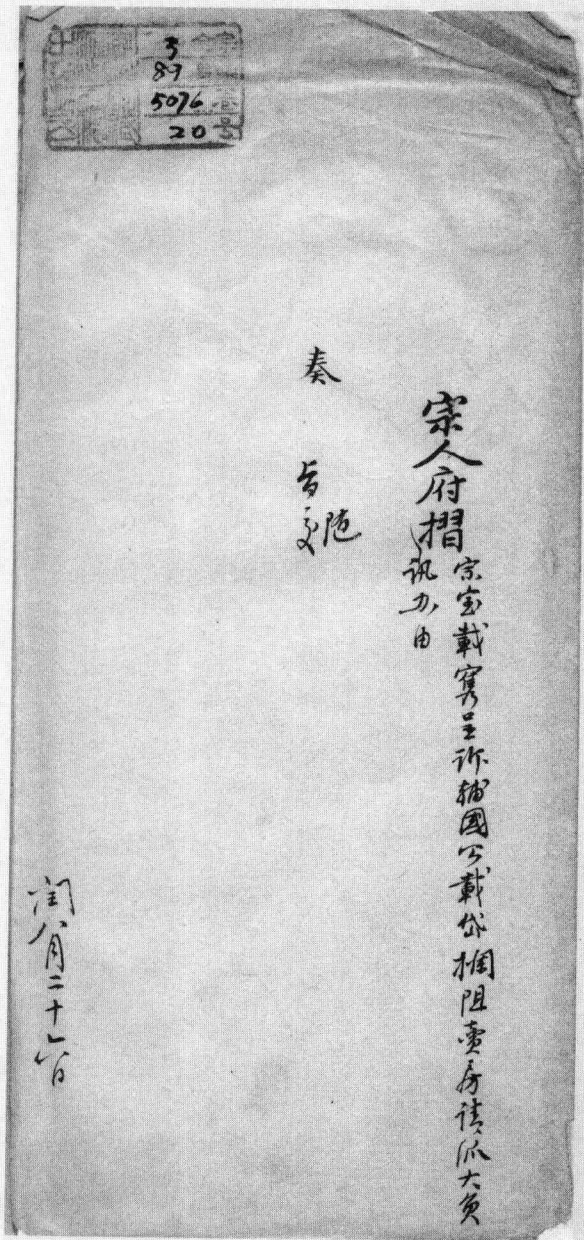 3
89
5076
20 号
宗人府摺
宗室載寯呈訴輔國公載岱攔阻賣房請派大員
訊办由
奏
旨交
随
閏八月二十八日